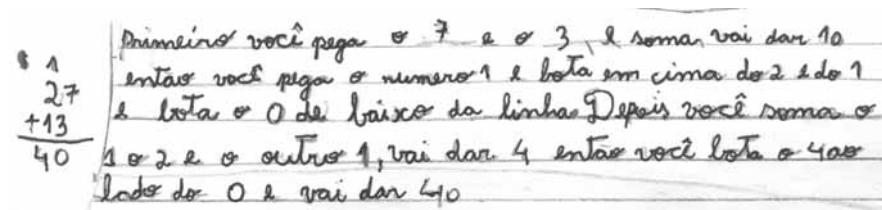 1
27
+13
40
Primeiro você pega o 7 e o 3, e soma, vai dar 10
então você pega o numero 1 e bota em cima do 2 e do 1
e bota o 0 de baixo da linha. Depois você soma o
1 o 2 e o outro 1, vai dar 4 então você bota o 4 ao
lado do 0 e vai dar 40